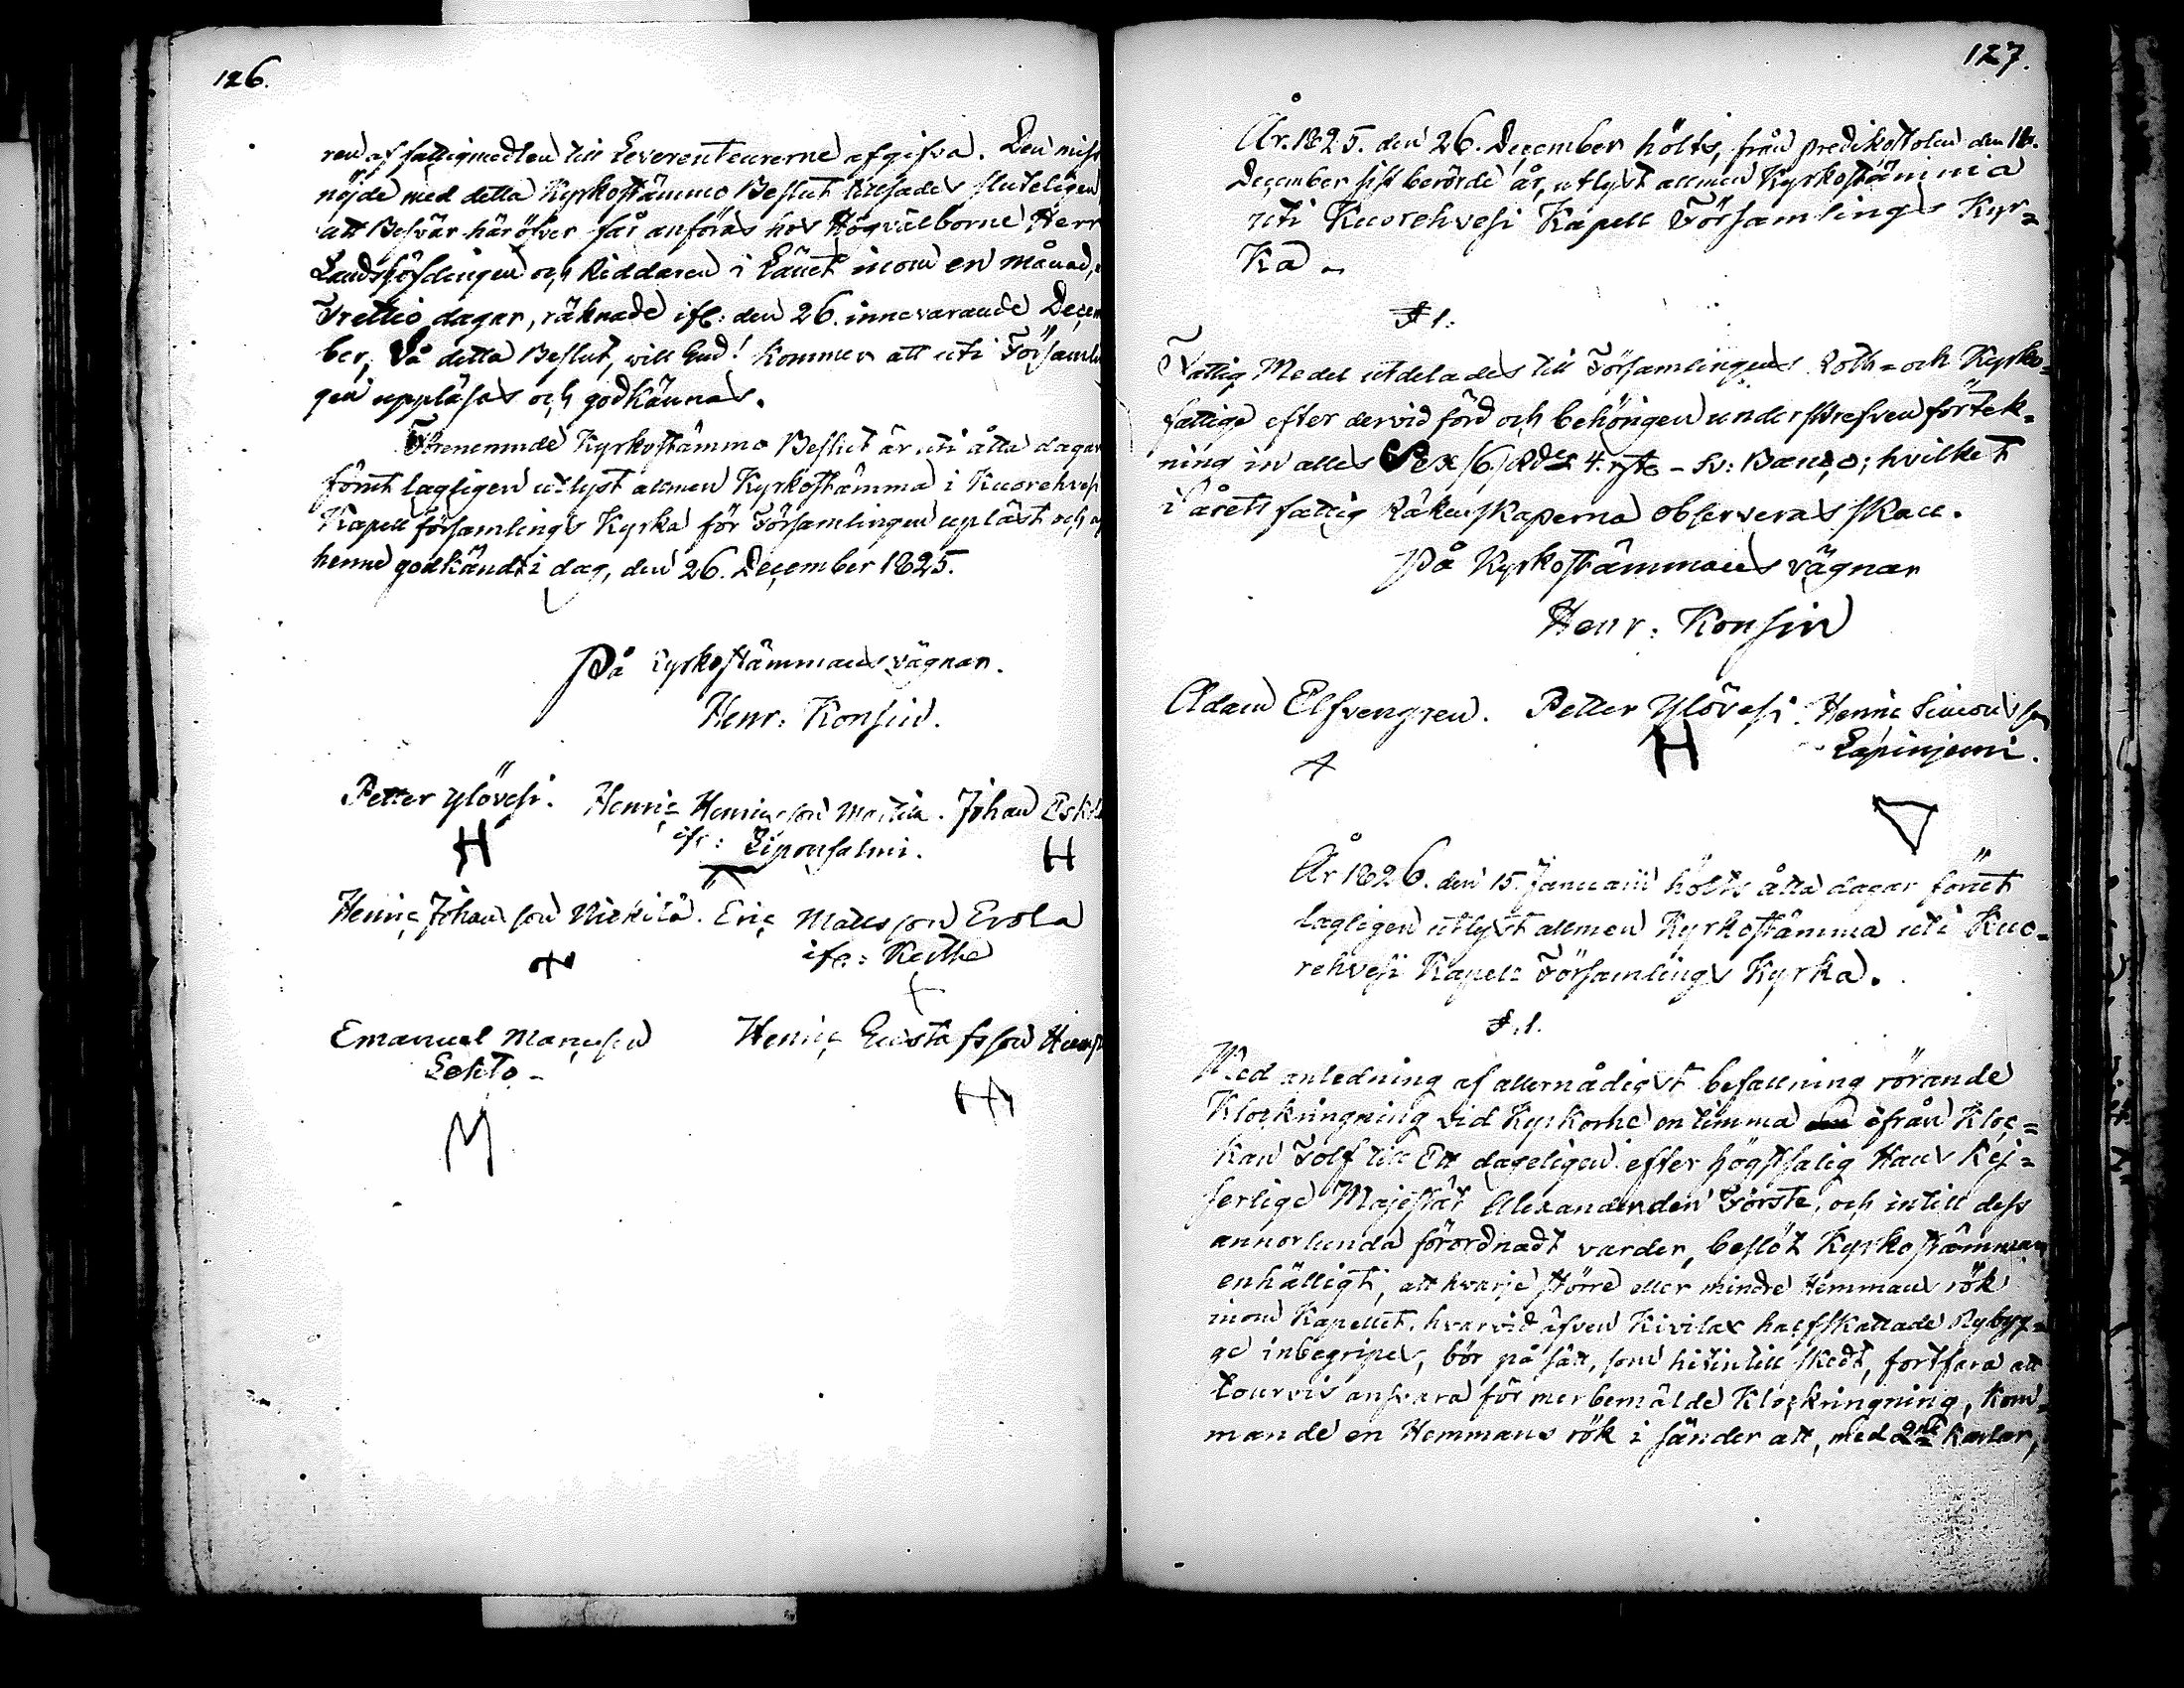 126.
ren af fattigmedlen till Leverenteurerne afgifva. Den miss
nöjde med detta Kyrkostämmo Beslut tillsades sluteligen
att Besvär häröfver får anföras hos Högvälborne Herr
Landshöfdingen och Riddaren i Länet inom en månad,
Trettio dagar, räknade ifr: den 26. innevarande Decem
ber, då detta Beslut, will Gud! kommer att uti Församlin
gen uppläsas och godkännas.
Förenemnde Kyrkostämmo Beslut är uti åtta dagar
förut lagligen utlyst allmen Kyrkostämma i Kuorehvesi
Kapell församlings Kyrka för Församlingen upläst och af
henne godkändt i dag, den 26. December 1825.
På Kyrkostämmans vägnar.
Henr: Konsin.
Petter Ylövesi. Henric Henricsson Mattila. Johan Eskola
ifr: Siponsalmi.
H H
Henric Johansson Nickilä. Eric Mattsson Erola
ifr: Keithe
Emanuel Manuson Henric Gustafsson
Lehto -
M
127.
År. 1825. den 26. December hölts, från predikostolen den 18.
December sist berörde år, utlyst allmen Kyrkostämma
uti Kuorehvesi Kapell Församlings Kyr=
ka.
§ 1.
Fattig Medel utdelades till Församlingens Roth= och Kyrko=
fattige efter dervid förd och behörigen underskrefven förtek=
ning in alles Sex /6/ Rd 4. - Sv: Banco; hvilket
i årets fattig Räkenskaperna observeras skall.
På Kyrkostämmans vägnar
Henr: Konsin
Adam Elfvengren. Petter Ylövesi. Henric Simonsson
H Lapinjemi.
År 1826. den 15. Januarii hölts åtta dagar förut
lagligen utlyst allmen Kyrkostämma uti Kuo=
rehvesi Kapell Församlings Kyrka.
§. 1.
Med anledning af allernådigst befallning rörande
Klockringning vid Kyrkorne en timma ifrån Kloc=
kan Tolf till Ett dageligen efter högstsalig Hans Kej=
serlige Majestät Alexander den Förste, och intill dess
annorlunda förordnadt varder, beslöt Kyrkostämman
enhälligt, att hvarje större eller mindre Hemmans rök
inom Kapellet, hvarvid äfven Kivilax halfskattade Nybyg=
ge inbegripes, bör på sätt, som hitintill skedt, fortfara att
tourvis ansvara för merbemälde Klockringning, kom=
mande en Hemmans rök i sänder att, med 2ne karlar,